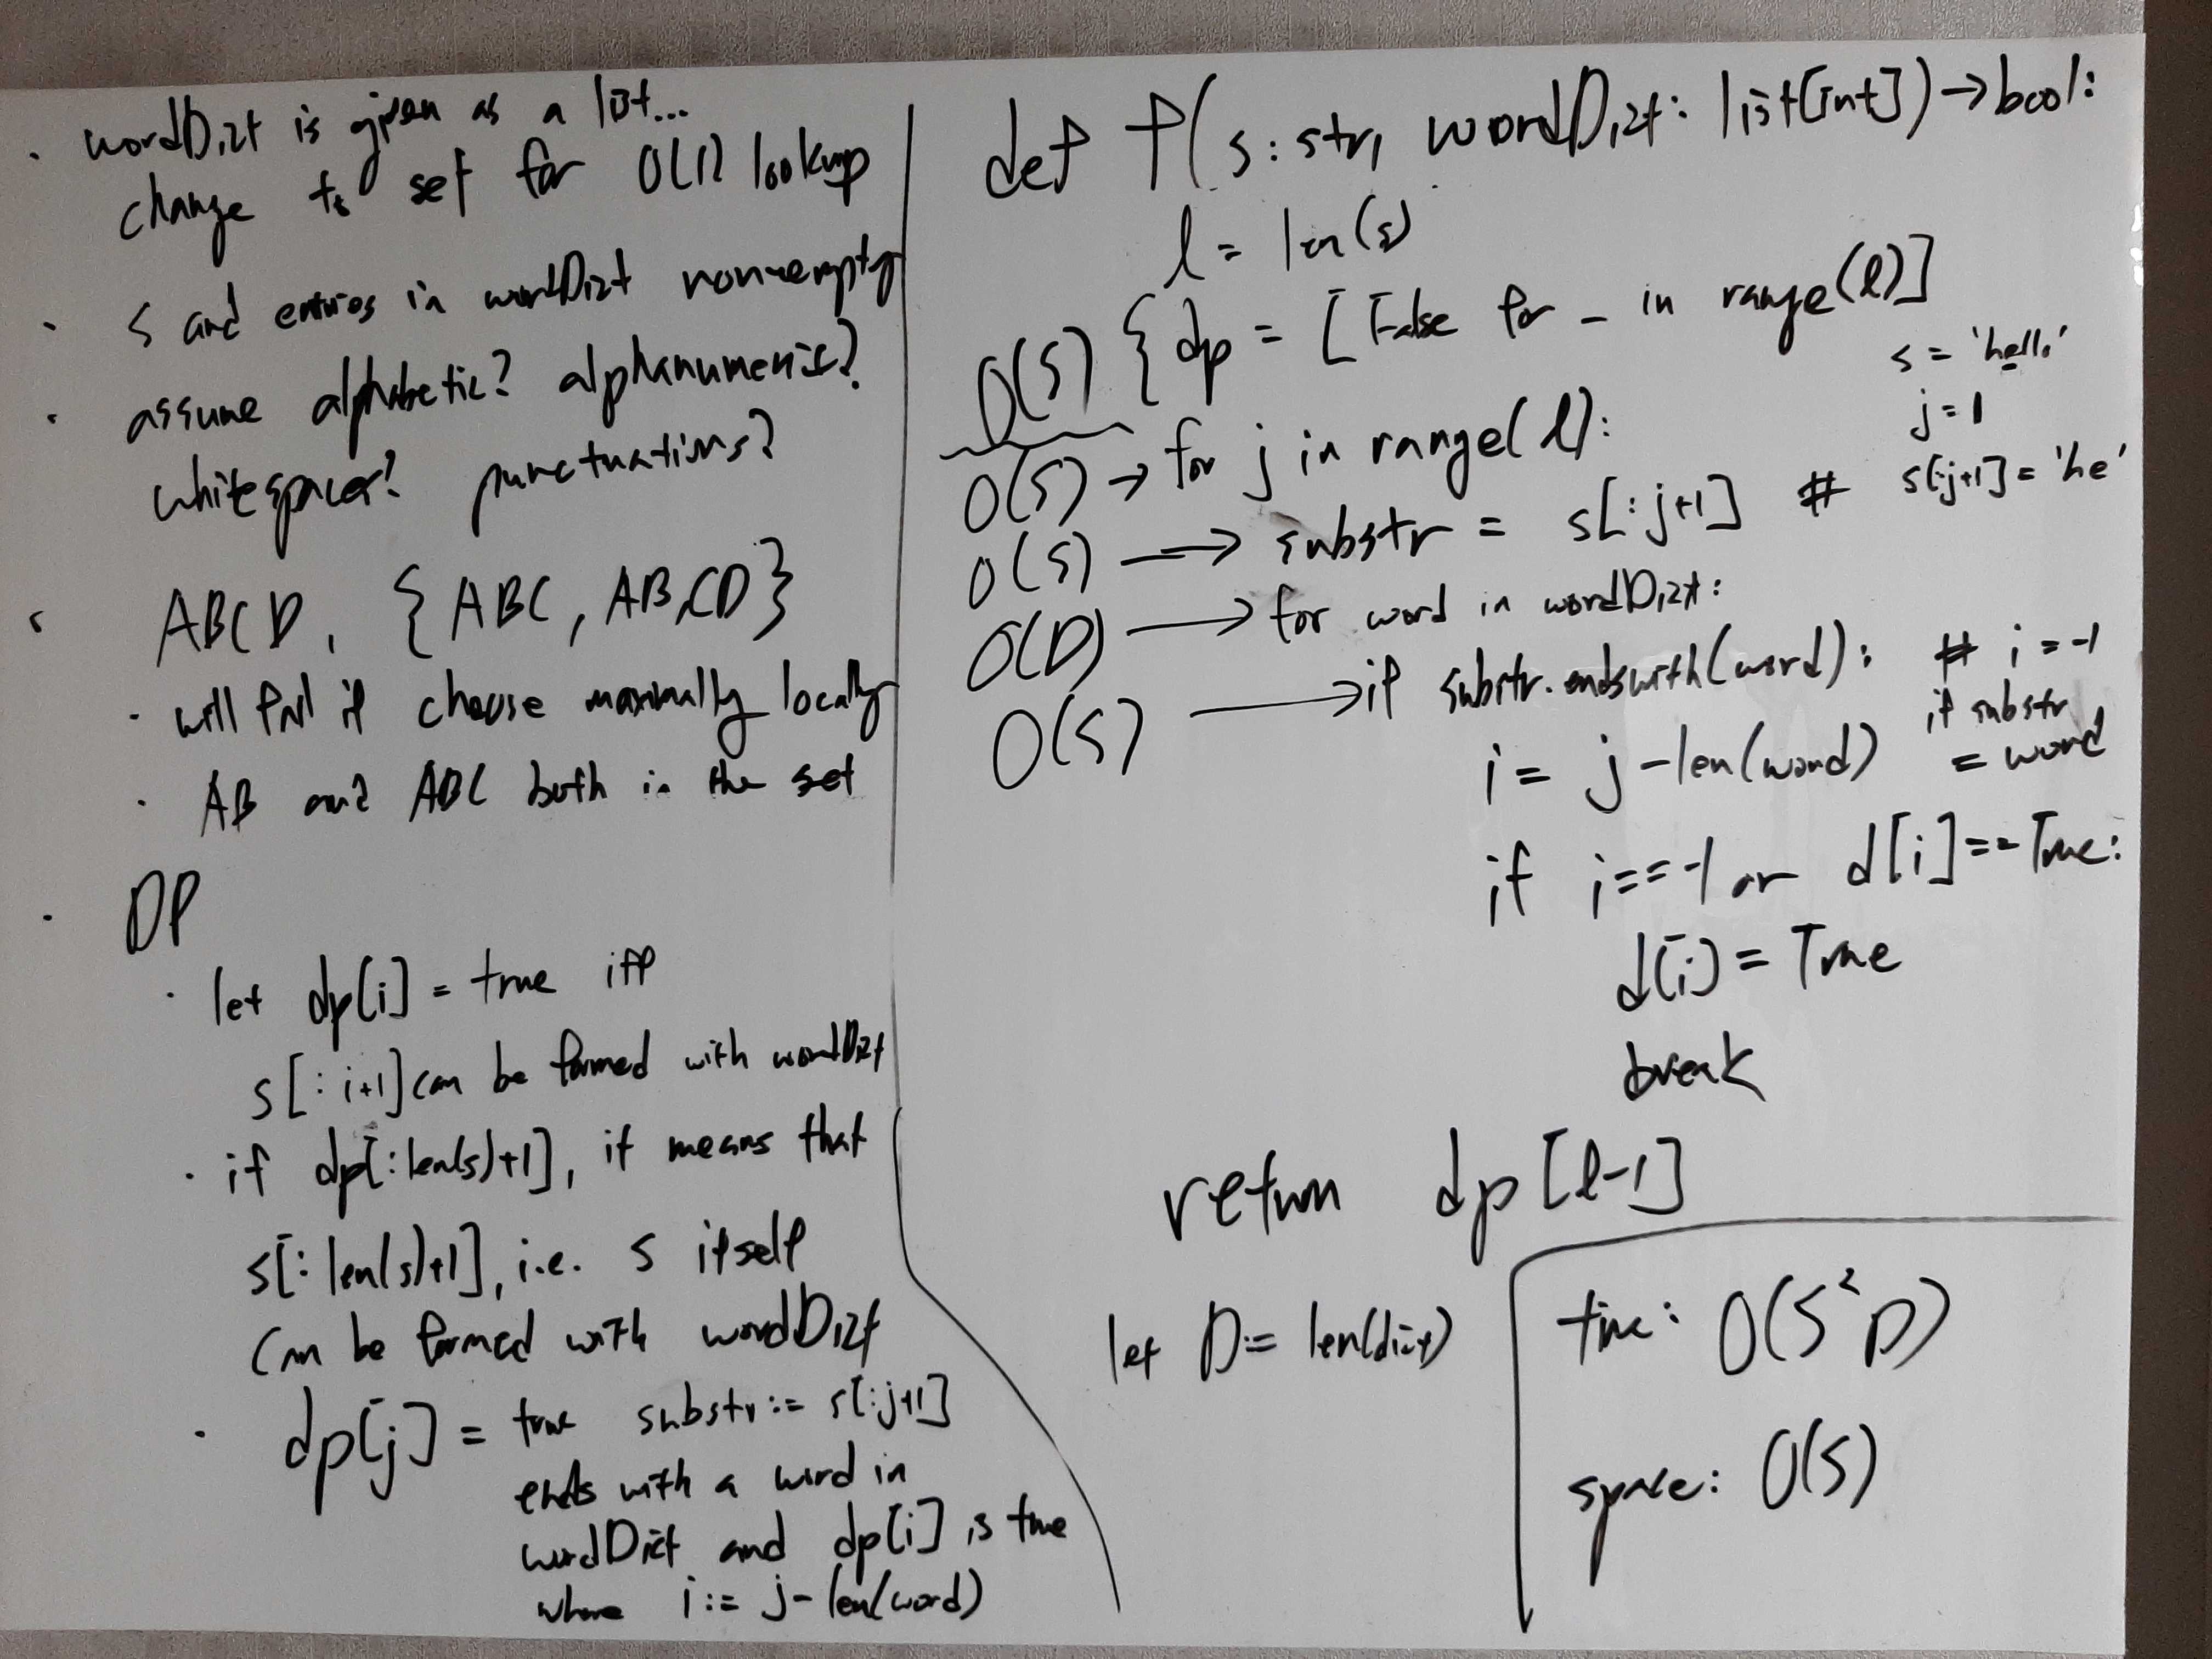 · wordDict is given as a list...
change to set for O(1) lookup
· s and entries in wordDict non-empty
· assume alphabetic? alphanumeric?
whitespaces? punctuations?
· ABCD, {ABC, AB, CD}
· will fail if choose maximally locally
· AB and ABC both in the set
· DP
· let dp[i] = true iff
s[:i+1] can be formed with wordDict
· if dp[:len(s)+1], it means that
s[:len(s)+1], i.e. s itself
can be formed with wordDict
· dp[j] = true substr := s[:j+1]
ends with a word in
wordDict and dp[i] is true
where i := j-len(word)
def f(s: str, wordDict: list[int]) → bool:
l = len(s)
O(S) { dp = [False for _ in range(l)]
s = 'hello'
j = 1
O(S) → for j in range(l):
O(S) → substr = s[:j+1] # s[:j+1] = 'he'
O(D) → for word in wordDict:
O(S) → if substr.endswith(word): # i = -1
if substr
= word
i = j - len(word)
if i == -1 or d[i] == True:
d[i] = True
break
return dp[l-1]
let D := len(dict)
time: O(S²D)
space: O(S)